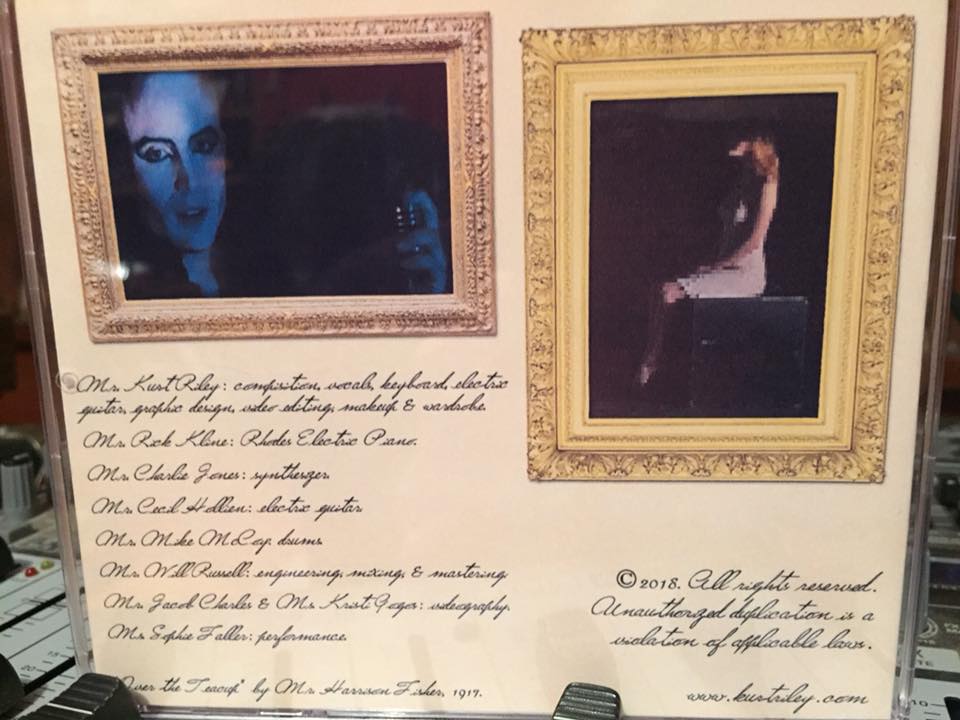 Mr. Kurt Riley: composition, vocals, keyboard, electric
guitar, graphic design, video editing, makeup & wardrobe.
Mr. Rick Kline: Rhodes Electric Piano.
Mr. Charlie Jones: synthesizer.
Mr. Cecil Hollien: electric guitar.
Mr. Mike McCoy: drums.
Mr. Will Russell: engineering, mixing, & mastering.
Mr. Jacob Charles & Ms. Kristi Gogos: videography.
Ms. Sophie Faller: performance.
"Over the Teacup" by Mr. Harrison Fisher, 1917.
©2018. All rights reserved.
Unauthorized duplication is a
violation of applicable laws.
www.kurtriley.com